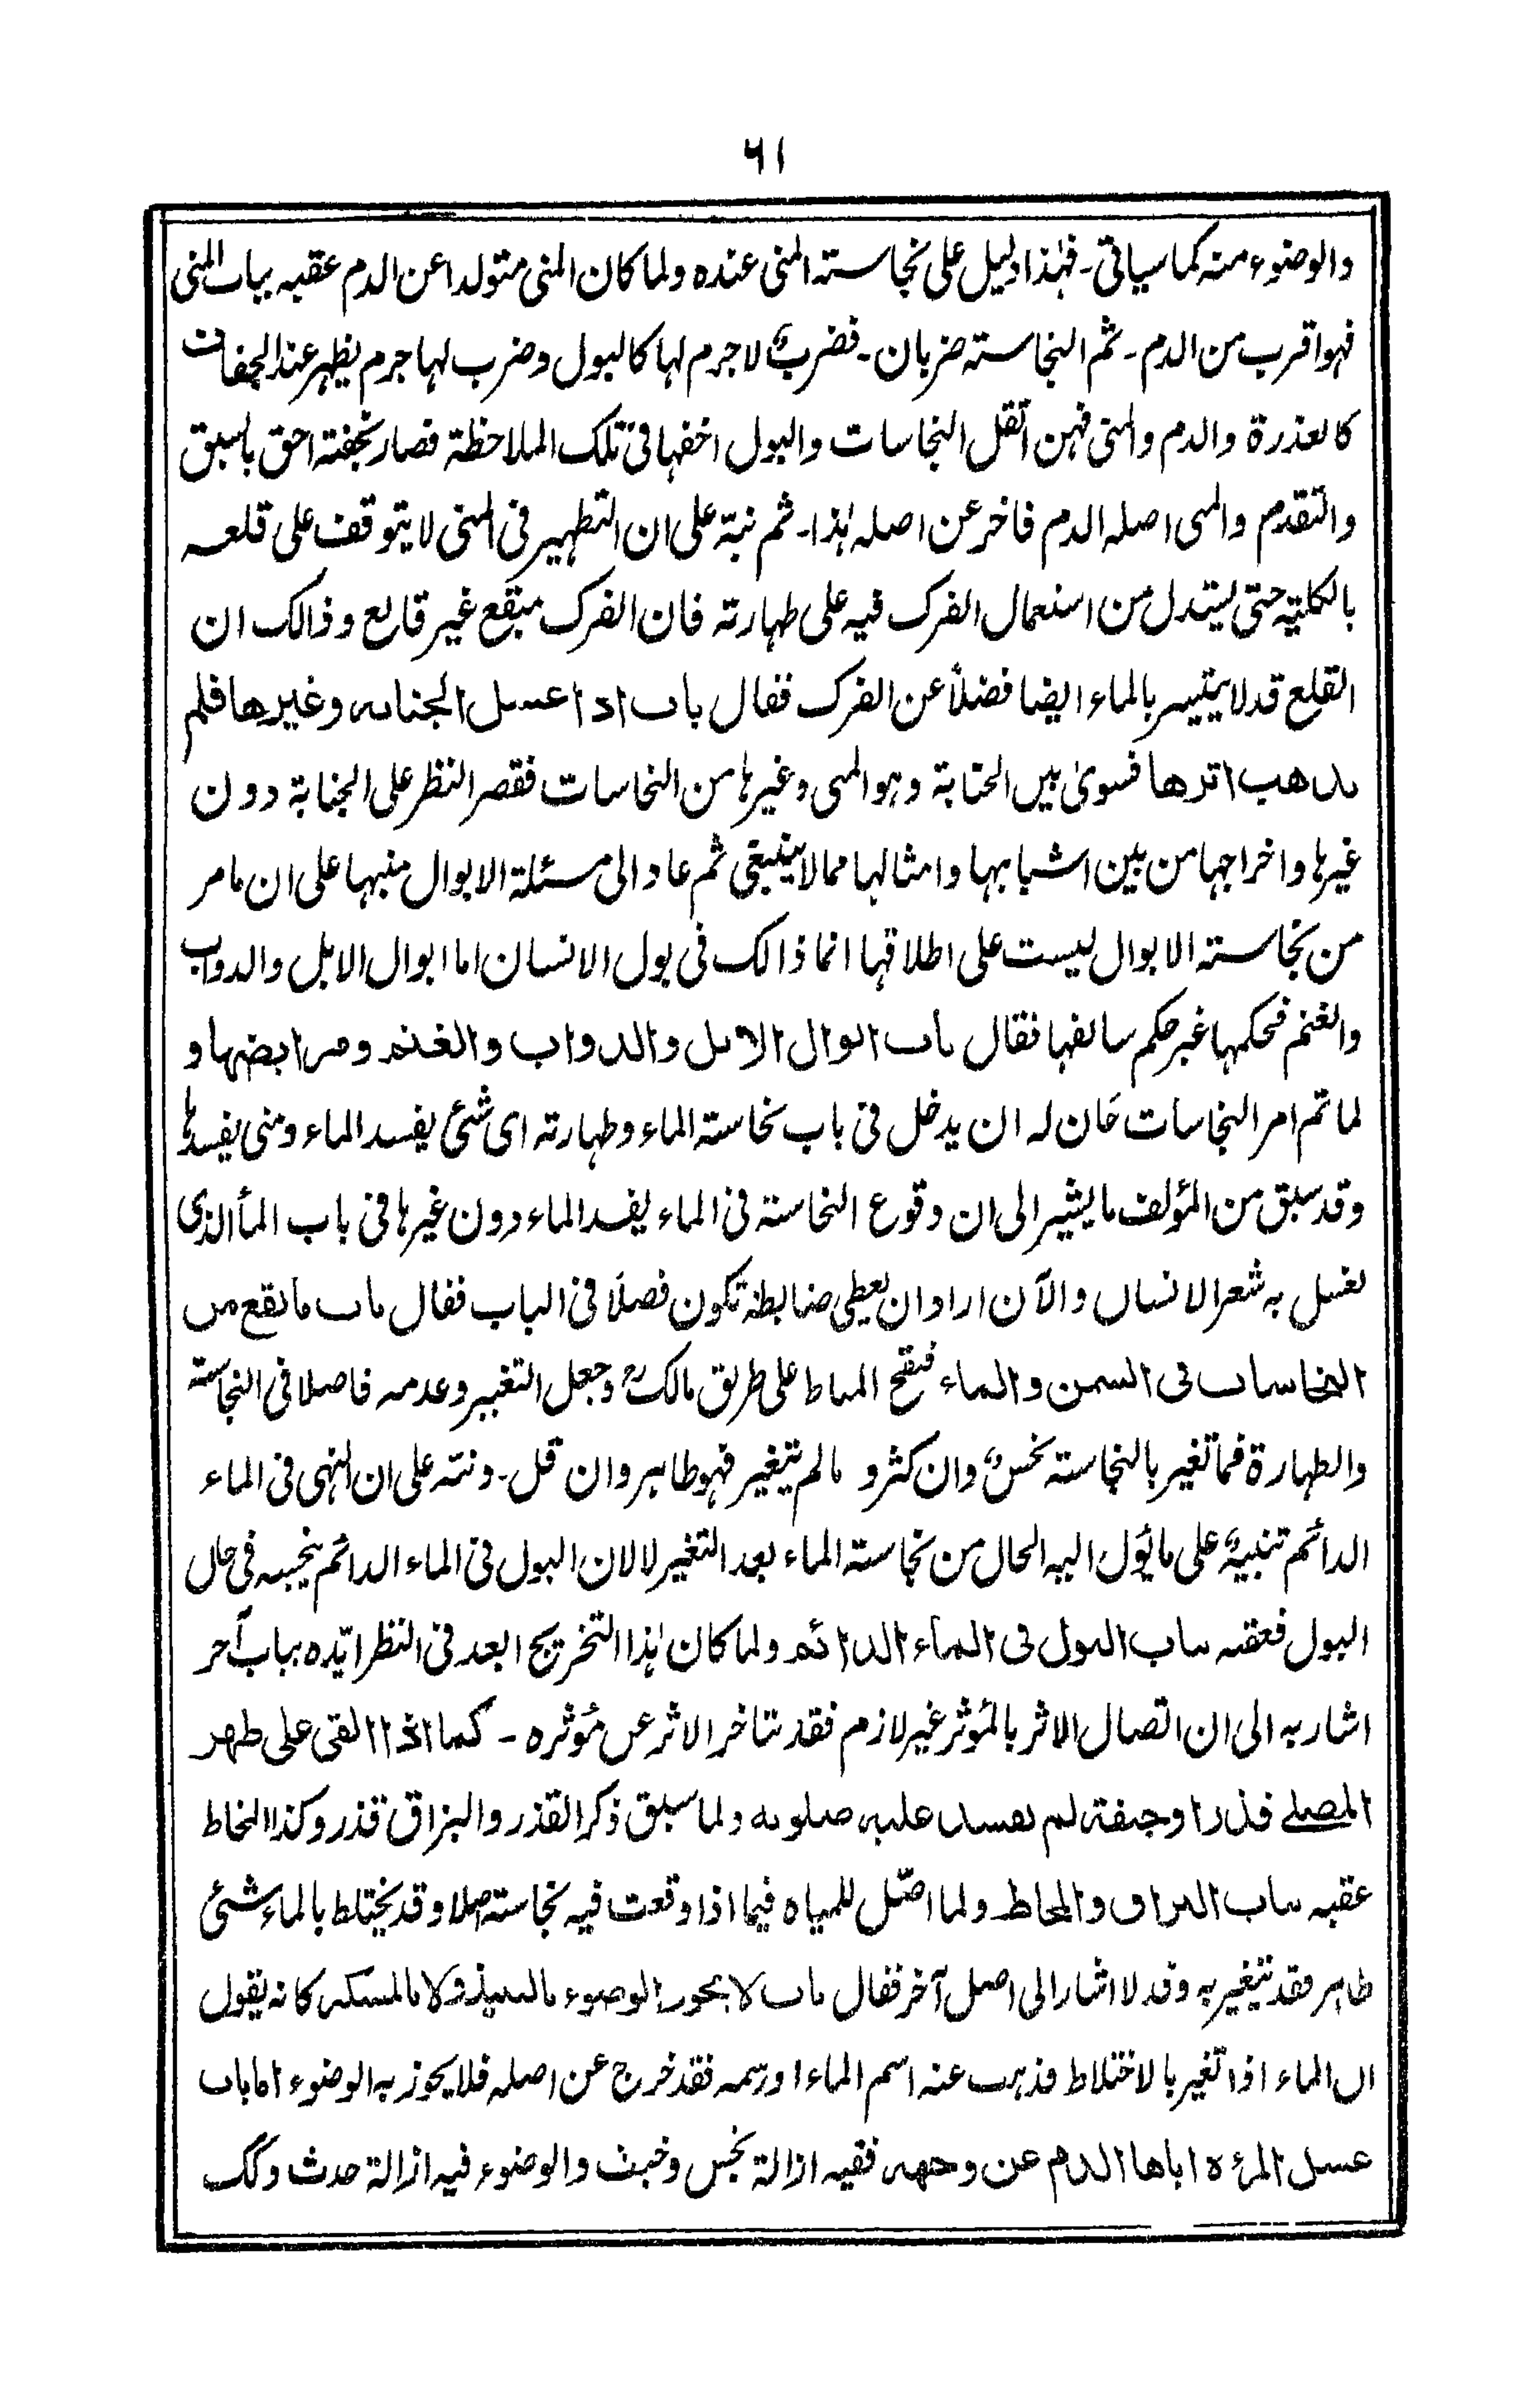 ٦١
والوضوء منه كما سياتى۔ فہٰذا دليل على نجاسته المنى عنده ولما كان المنى متولدا عن الدم عقبه بباب المنى
فہو اقرب من الدم۔ ثم النجاسته ضربان۔ فضربٌ لا جرم لہا كالبول وضرب لہا جرم يظہر عند الجفاف
كالعذرة والدم والمنى فہن اثقل النجاسات والبول اخفہا فى تلك الملاحظة فصار بخفته احق بالسبق
والتقدم والمنى اصله الدم فاخر عن اصله ہٰذا۔ ثم نبّه على ان التطہير فى المنى لا يتوقف على قلعه
بالكليّة حتى يستدل من استعمال الفرك فيه على طہارته فان الفرك مبقع غير قالع وذالك ان
القلع قد لا يتيسر بالماء ايضا فضلاً عن الفرك فقال باب اذا غسل الجنابه وغيرها فلم
يذهب اثرها فسوىٰ بين الجنابة وہو المنى وغيرہا من النجاسات فقصر النظر على الجنابة دون
غيرہا واخراجہا من بين اشباہہا وامثالہا مما لا ينبغى ثم عاد الى مسئلة الابوال منبہا على ان ما مر
من نجاسته الابوال ليست على اطلاقہا انما ذالك فى بول الانسان اما ابوال الابل والدواب
والغنم فحكمہا غير حكم سالفہا فقال باب ابوال الابل والدواب والغنم ومرابضہا و
لما تم امر النجاسات حَان له ان يدخل فى باب نجاسته الماء وطہارته اى شئ يفسد الماء ومتى يفسدہا
وقد سبق من المؤلف ما يشير الى ان وقوع النجاسته فى الماء يفسد الماء دون غيرہا فى باب المأ الذى
يغسل به شعر الانسان والآن اراد ان يعطى ضابطة تكون فصلاً فى الباب فقال باب ما يقع من
النجاسات فى السمن والماء فنقح المناط على طريق مالكؒ وجعل التغيير وعدمه فاصلا فى النجاسته
والطہارة فما تغير بالنجاسته نجسٌ وان كثر و مالم يتغير فہو طاہر وان قل۔ ونبّه على ان النہى فى الماء
الدائم تنبيہٌ على ما يَؤُل اليه الحال من نجاسته الماء بعد التغير لا لان البول فى الماء الدائم ينجسه فى حال
البول فعقبه بباب البول فى الماء الدائم ولما كان ہٰذا التخريج ابعد فى النظر ايّده بباب آخر
اشار به الى ان اتصال الاثر بالمؤثر غير لازم فقد يتاخر الاثر عن مؤثره ۔ كما اذا القى على ظہر
المصلے قذر اوجيفة لم يفسد عليه صلوته ولما سبق ذكر القذر والبزاق قذر وكذا المخاط
عقبه بباب البزاق والمخاط ولما اصّل للمياه فيما اذا وقعت فيه نجاسته اصلا وقد يختلط بالماء شئ
طاہر فقد يتغير به وقد لا اشار الى اصل آخر فقال باب لا يجوز الوضوء بالنبيذ ولا بالمسكر كانه يقول
ان الماء اذا تغير بالاختلاط فذہب عنه اسم الماء اورسمه فقد خرج عن اصله فلا يجوز به الوضوء اما باب
غسل المرءة اباها الدم عن وجهه ففيه ازالة نجس وخبث والوضوء فيه ازالة حدث وكك